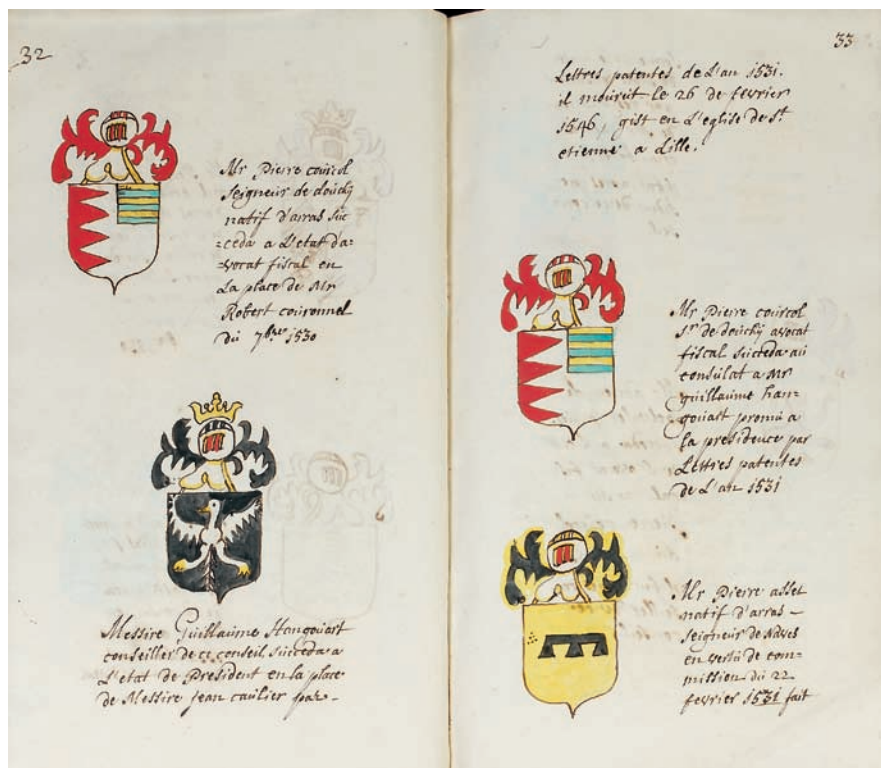 32
Mr Pierre courcol
seigneur de douchy
natif d'arras suc-
=ceda a L'etat d'a-
=vocat fiscal en
La place de Mr
Robert couronnel
du 7bre 1530
Messire Guillaume Hangouart
conseiller de ce conseil, succeda a
L'etat de President en la place
de Messire jean caulier par-
33
Lettres patentes de L'an 1531.
il mourut le 26 de fevrier
1546, gist en L'eglise de St
etienne a Lille.
Mr Pierre courcol
Sr de douchy avocat
fiscal succeda au
consulat a Mr
guillaume han-
gouart promu a
la presidence par
Lettres patentes
de L'an 1531
Mr Pierre asset
natif d'arras -
seigneur de Naves
en vertu de com-
mission du 22
fevrier 1531 fait